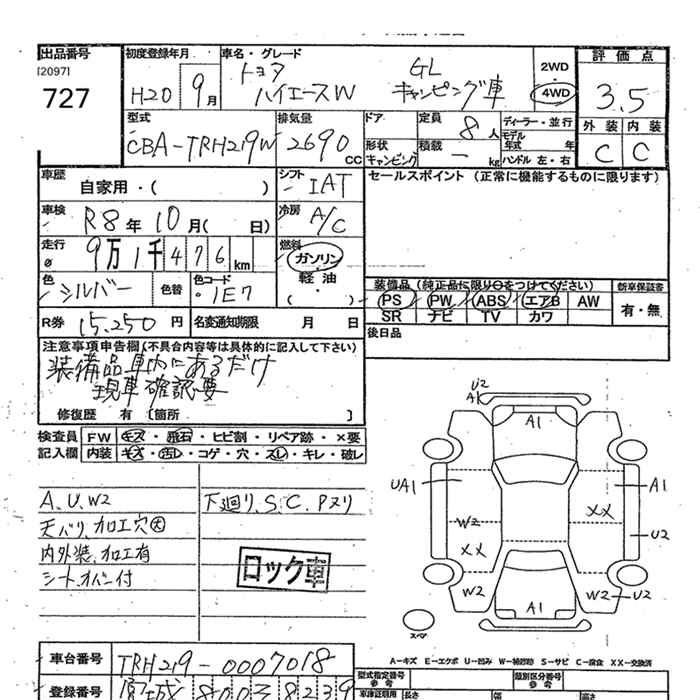 出品番号
[2097]
727
初度登録年月
H20 9月
車名・グレード
トヨタ GL
ハイエースW キャンピング車
2WD
4WD
評価点
3.5
外装 内装
C C
型式
CBA-TRH219W
排気量
2690 cc
ドア
定員 8人
形状 キャンピング
積載 - kg
ディーラー・並行
モデル
年式 年
ハンドル 左・右
車歴
自家用・( )
シフト
IAT
セールスポイント (正常に機能するものに限ります)
車検
R8年 10月( 日)
冷房
A/C
走行
9万1千476km
燃料
ガソリン
・
軽油
・( )
色
シルバー
色替
色コード
・1E7
装備品(純正品に限り○をつけてください)
PS PW ABS エアB AW
SR ナビ TV カワ
新車保証書
有・無
R券 15,250円
名変通知期限 月 日
後日品
注意事項申告欄(不具合内容等は具体的に記入して下さい)
装備品車内にあるだけ
現車確認要
修復歴 有 〔箇所 〕
検査員
記入欄
FW キズ・飛石・ヒビ割・リペア跡・×要
内装 キズ・汚レ・コゲ・穴・スレ・キレ・破レ
A、U、W2
天バリ、加工穴大
内外装、加工有
シート、オバン付
下廻り、S、C、Pヌリ
ロック車
U2
A1
A1
UA1
A1
W2
XX
XX
U2
W2
W2
U2
A1
スペア
A-キズ E-エクボ U-凹み W-補修跡 S-サビ C-腐食 XX-交換済
車台番号
TRH219-0007018
登録番号
宮城 800 す 8239
型式指定番号
参考
類別区分番号
参考
車庫証明用
長さ
幅
高さ